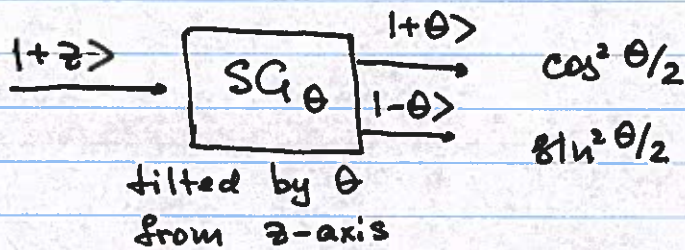 |+z> SG_θ |+θ> cos² θ/2
|-θ> sin² θ/2
tilted by θ
from z-axis